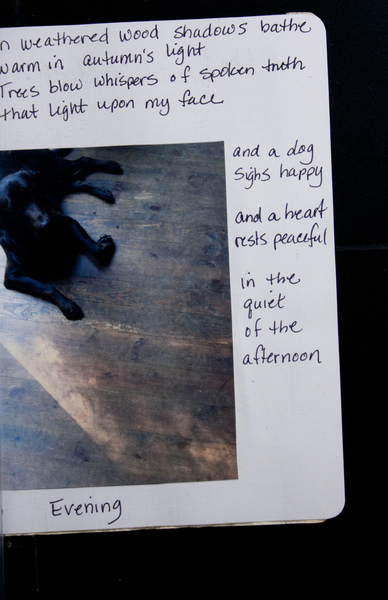 n weathered wood shadows bathe
warm in autumn's light
Trees blow whispers of spoken truth
that light upon my face
and a dog
sighs happy
and a heart
rests peaceful
in the
quiet
of the
afternoon
Evening